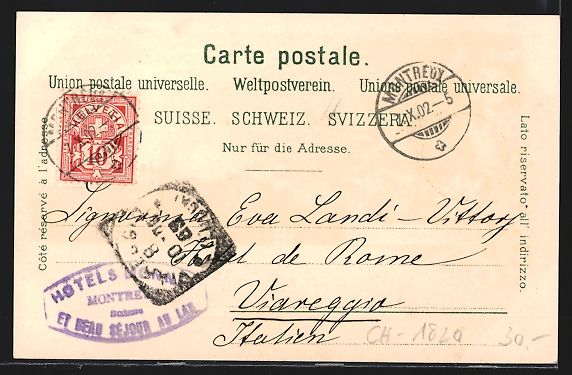 Carte postale.
Union postale universelle. Weltpostverein. Unione postale universale.
SUISSE. SCHWEIZ. SVIZZERA.
Nur für die Adresse.
Côté réservé à l'adresse.
Lato riservato all' indirizzo.
HELVETIA
10
MONTREUX
IX.02-5
Signorina Eva Landi-Vittorj
Hotel de Rome
Viareggio
Italien
HOTELS
MONTREUX
Suisse
ET BEAU SÉJOUR AU LAC
CH-1820 30.-